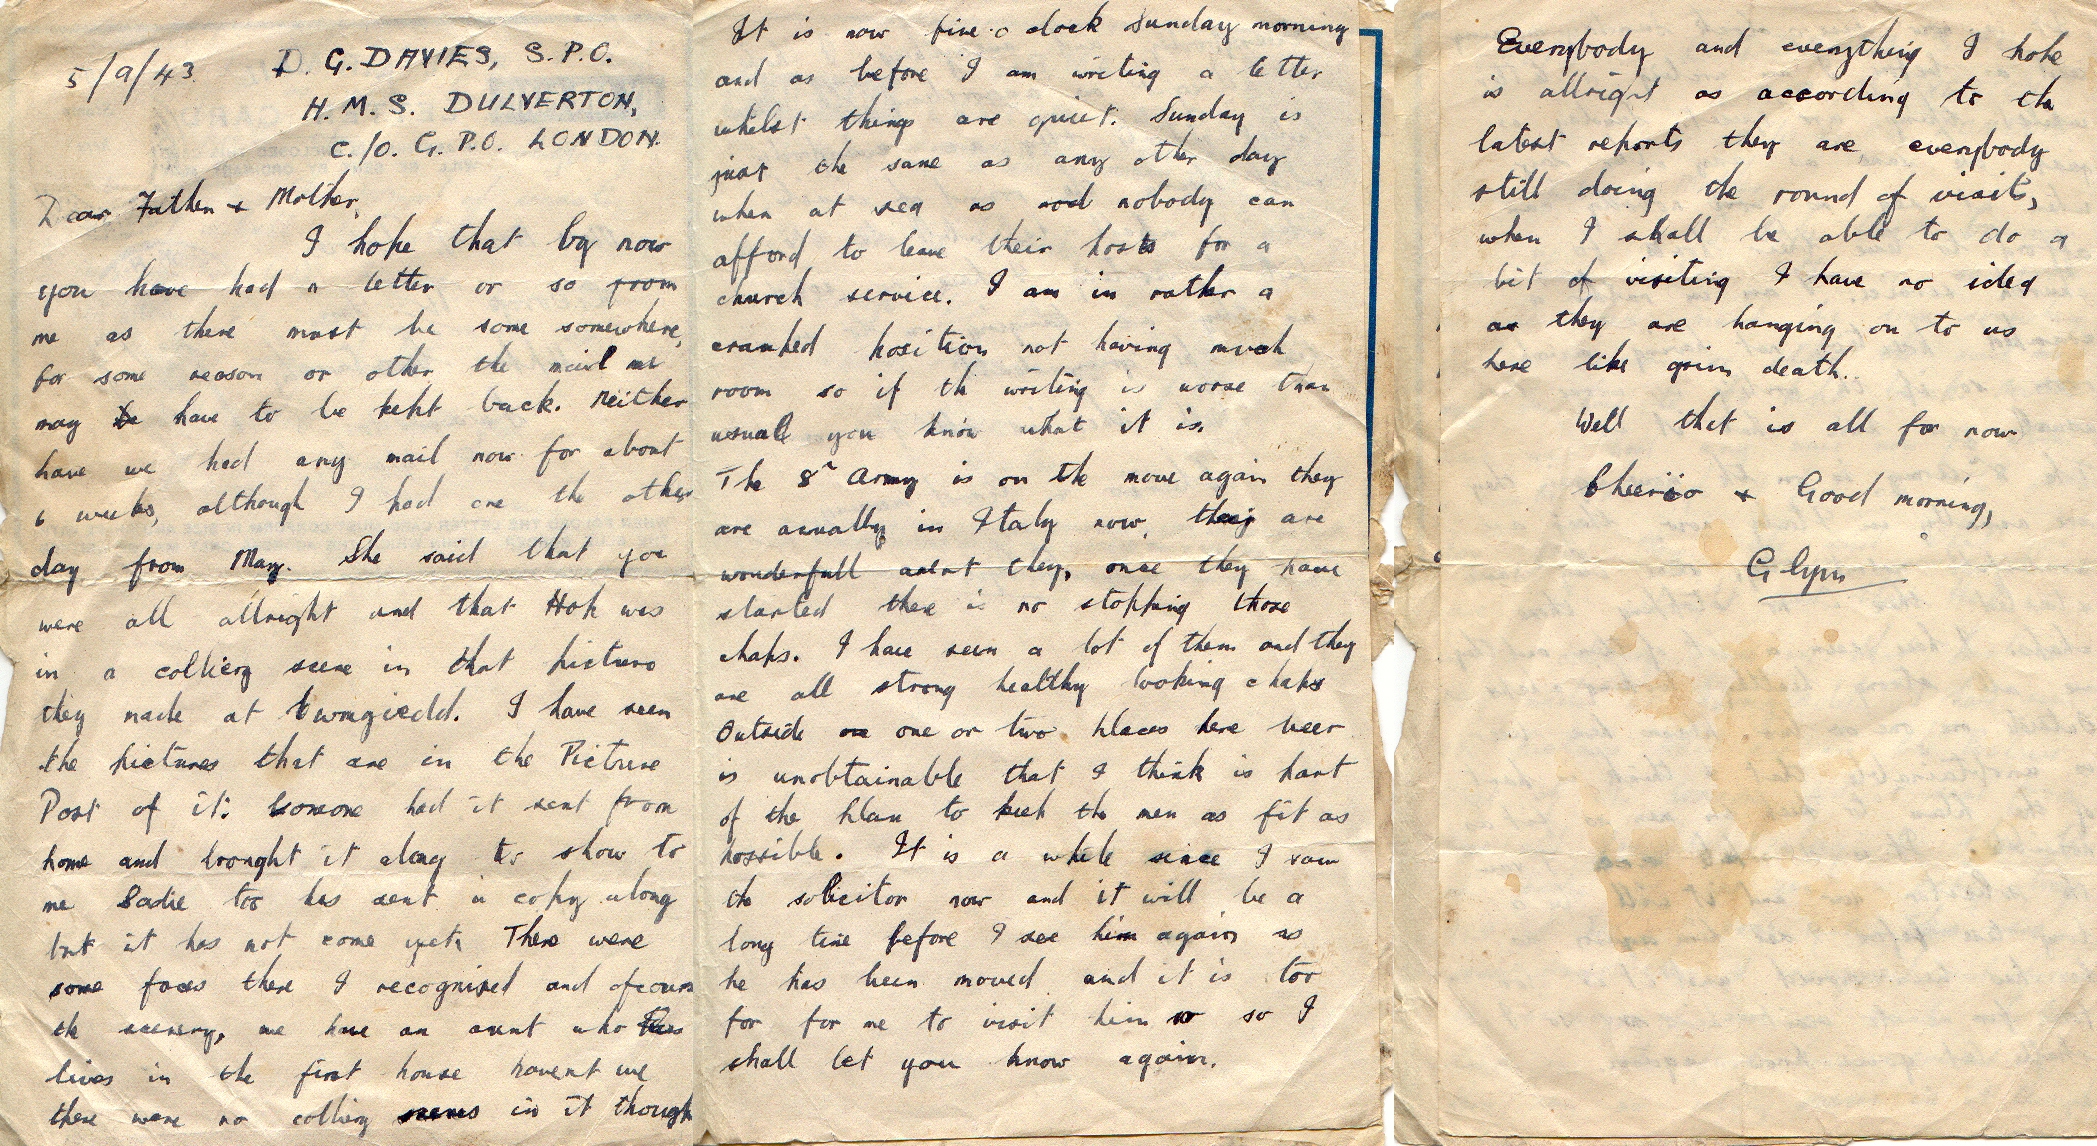 5/9/43.
D. G. DAVIES, S.P.O.
H. M. S. DULVERTON,
C./O. G. P.O. LONDON.
Dear Father + Mother,
I hope that by now
you have had a letter or so from
me as there must be some somewhere,
for some reason or other the mail
may have to be kept back. Neither
have we had any mail now for about
6 weeks, although I had one the other
day from May. She said that you
were all allright and that Hop was
in a colliery scene in that picture
they made at Cwmgiedd. I have seen
the pictures that are in the Picture
Post of it. Someone had it sent from
home and brought it along to show to
me Sadie too has sent a copy along
but it has not come yet. There were
some faces there I recognised and ofcourse
the scenery, we have an aunt who
lives in the first house havent we
there were no colliery scenes in it though
It is now five o clock Sunday morning
and as before I am writing a letter
whilst things are quiet. Sunday is
just the same as any other day
when at sea as nobody can
afford to leave their posts for a
church service. I am in rather a
cramped position not having much
room so if the writing is worse than
usuall you know what it is.
The 8th Army is on the move again they
are acually in Italy now, they are
wonderfull arent they, once they have
started there is no stopping those
chaps. I have seen a lot of them and they
are all strong healthy looking chaps
Outside one or two places here beer
is unobtainable that I think is part
of the plan to keep the men as fit as
possible. It is a while since I saw
the solicitor now and it will be a
long time before I see him again as
he has been moved and it is too
far for me to visit him so I
shall let you know again.
Everybody and everything I hope
is allright as according to the
latest reports they are everybody
still doing the round of visits,
when I shall be able to do a
bit of visiting I have no idea
as they are hanging on to us
here like grim death.
Well that is all for now
Cheerio + Good morning,
Glyn